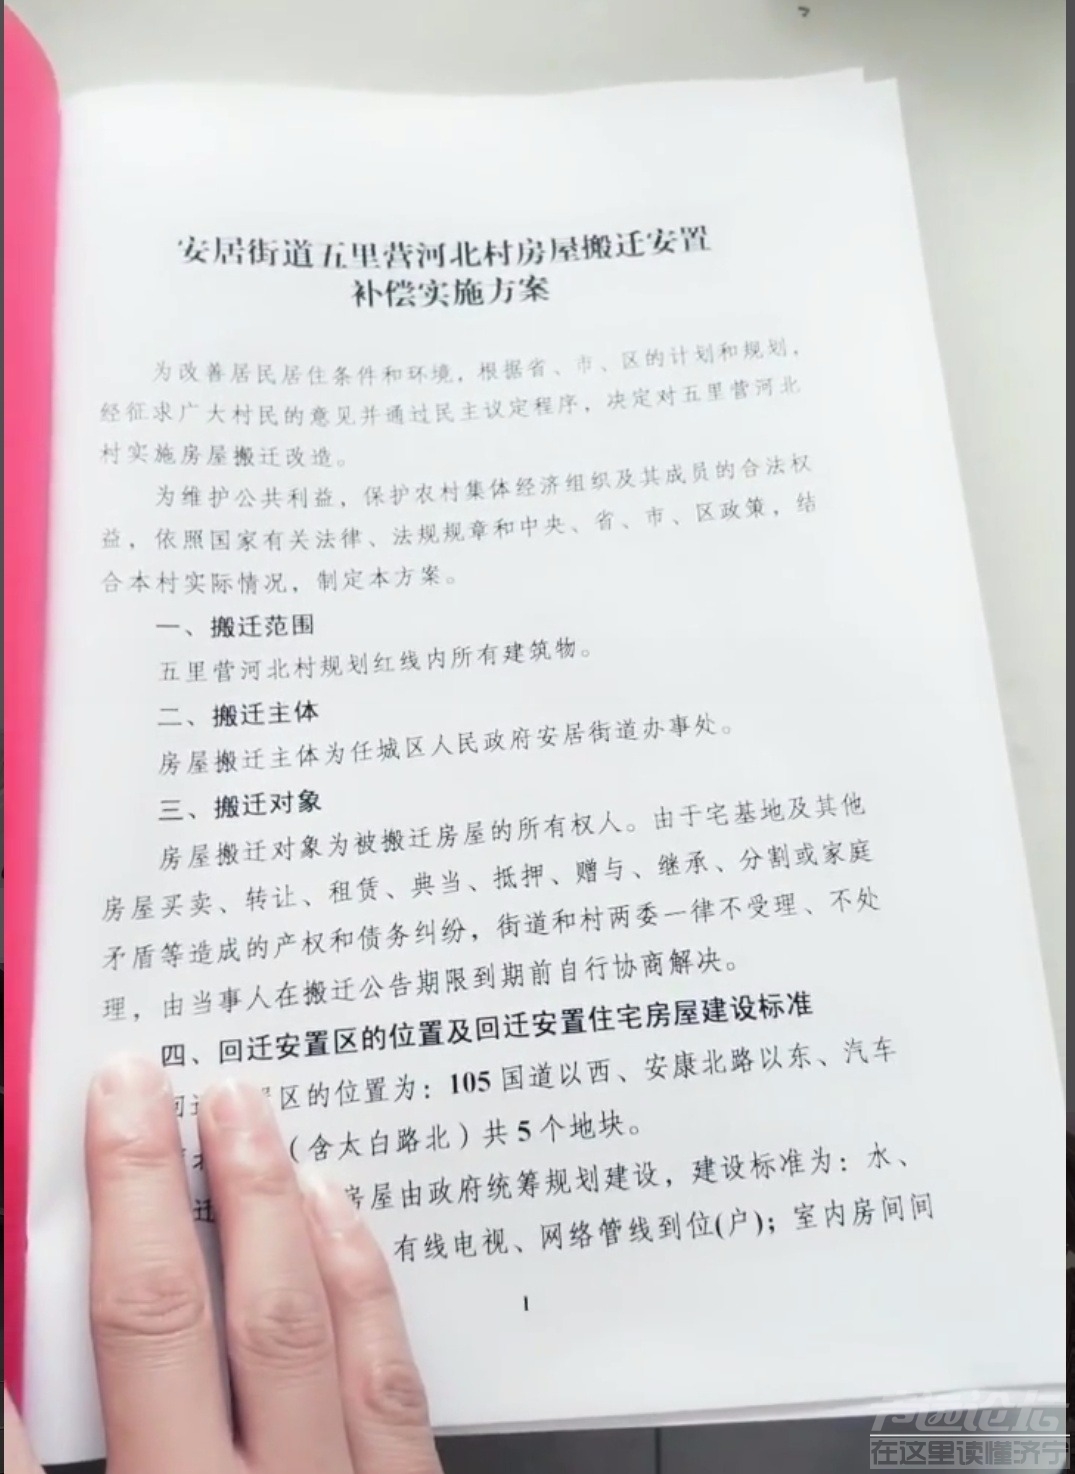 安居街道五里营河北村房屋搬迁安置
补偿实施方案
为改善居民居住条件和环境，根据省、市、区的计划和规划，
经征求广大村民的意见并通过民主议定程序，决定对五里营河北
村实施房屋搬迁改造。
为维护公共利益，保护农村集体经济组织及其成员的合法权
益，依照国家有关法律、法规规章和中央、省、市、区政策，结
合本村实际情况，制定本方案。
一、搬迁范围
五里营河北村规划红线内所有建筑物。
二、搬迁主体
房屋搬迁主体为任城区人民政府安居街道办事处。
三、搬迁对象
房屋搬迁对象为被搬迁房屋的所有权人。由于宅基地及其他
房屋买卖、转让、租赁、典当、抵押、赠与、继承、分割或家庭
矛盾等造成的产权和债务纠纷，街道和村两委一律不受理、不处
理，由当事人在搬迁公告期限到期前自行协商解决。
四、回迁安置区的位置及回迁安置住宅房屋建设标准
区的位置为：105国道以西、安康北路以东、汽车
（含太白路北）共5个地块。
迁 房屋由政府统筹规划建设，建设标准为：水、
有线电视、网络管线到位(户)；室内房间间
1
在这里读懂济宁